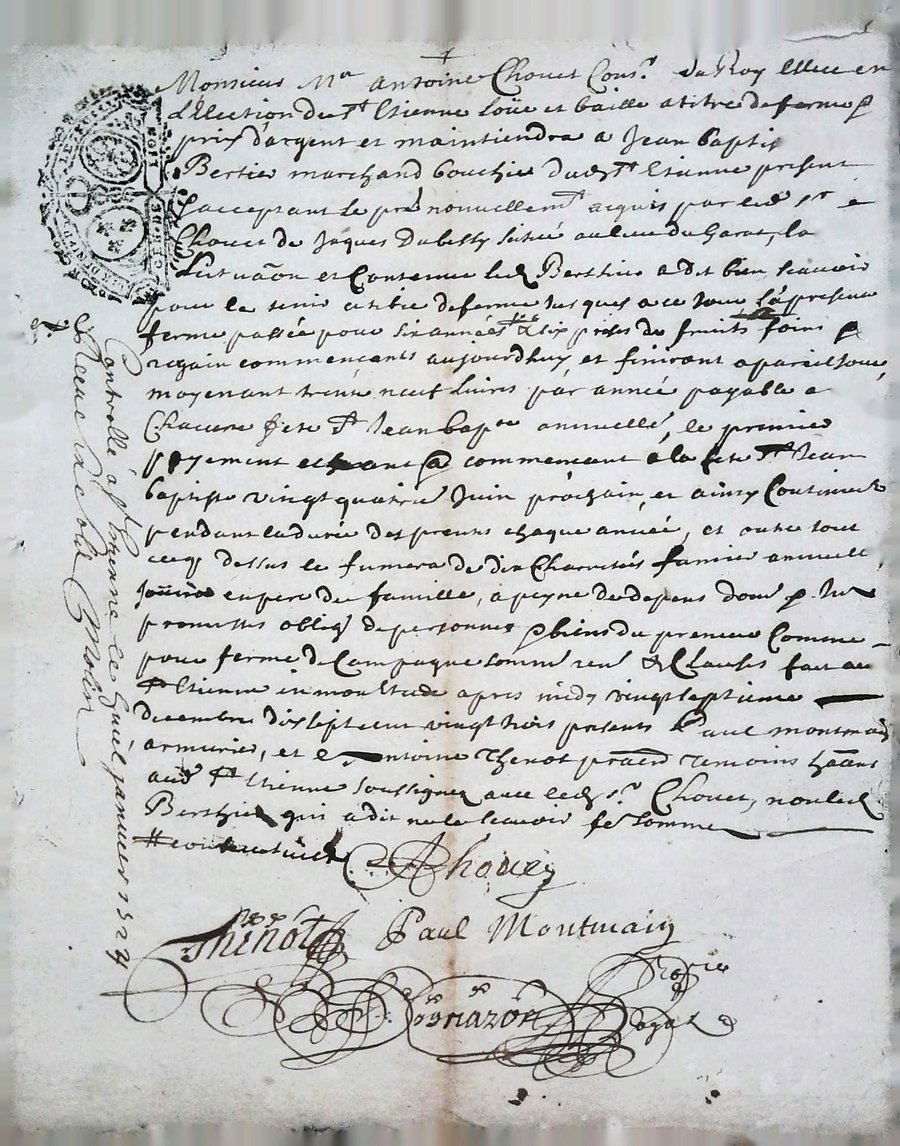 Monsieur Mre Antoine Chovet Consr. du Roy Elleu en
L'Election de St Etienne Loüe et baille a titre de ferme &
prix d'argent et maintiendra a Jean baptis
Bertier marchand bouchier dud St Etienne present
& acceptant le pré nouvellemt acquis par led sr
Chovet de Jaques Dubessy scitué au lieu du Garat, la
scituaõn et Contenue led Berthier a dit bien scavoir
pour le tenir a titre de ferme jusques a ce jour La presente
ferme passée pour six années # & six prises de fruits foins &
regain commencants aujourdhuy et finiront a pareil jour
moyenant trente neuf Livres par année payable a
Chacune feste St Jean bapte annuelle, le premier
payement commencant a la fete St Jean
baptiste vingt quatrie Juin prochain, et ainsy Continuer
pendant la durée des pntes chaque année, et outre tout
ce q dessus le fumera de dix Charretés fumier annuell
en pere de famille, a peyne de depens dom &
promesses oblig de personnes & biens du preneur Comme
pour ferme de Campagne somm ren & Clauses fait au
St Etienne en mon Etude apres midy vingt septieme
decembre dix sept cent vingt trois presents Paul montmain
armurier, et sr Antoine Thenot temoins
aud St Etienne soussignez avec led sr. Chovet, non led
Berthier qui a dit ne le scavoir de somme
# consecutives
AChovet
Thenot Paul Montmain
Nore
Royal
Controllé a St Etienne le huit janvier 1724
Receu six sols